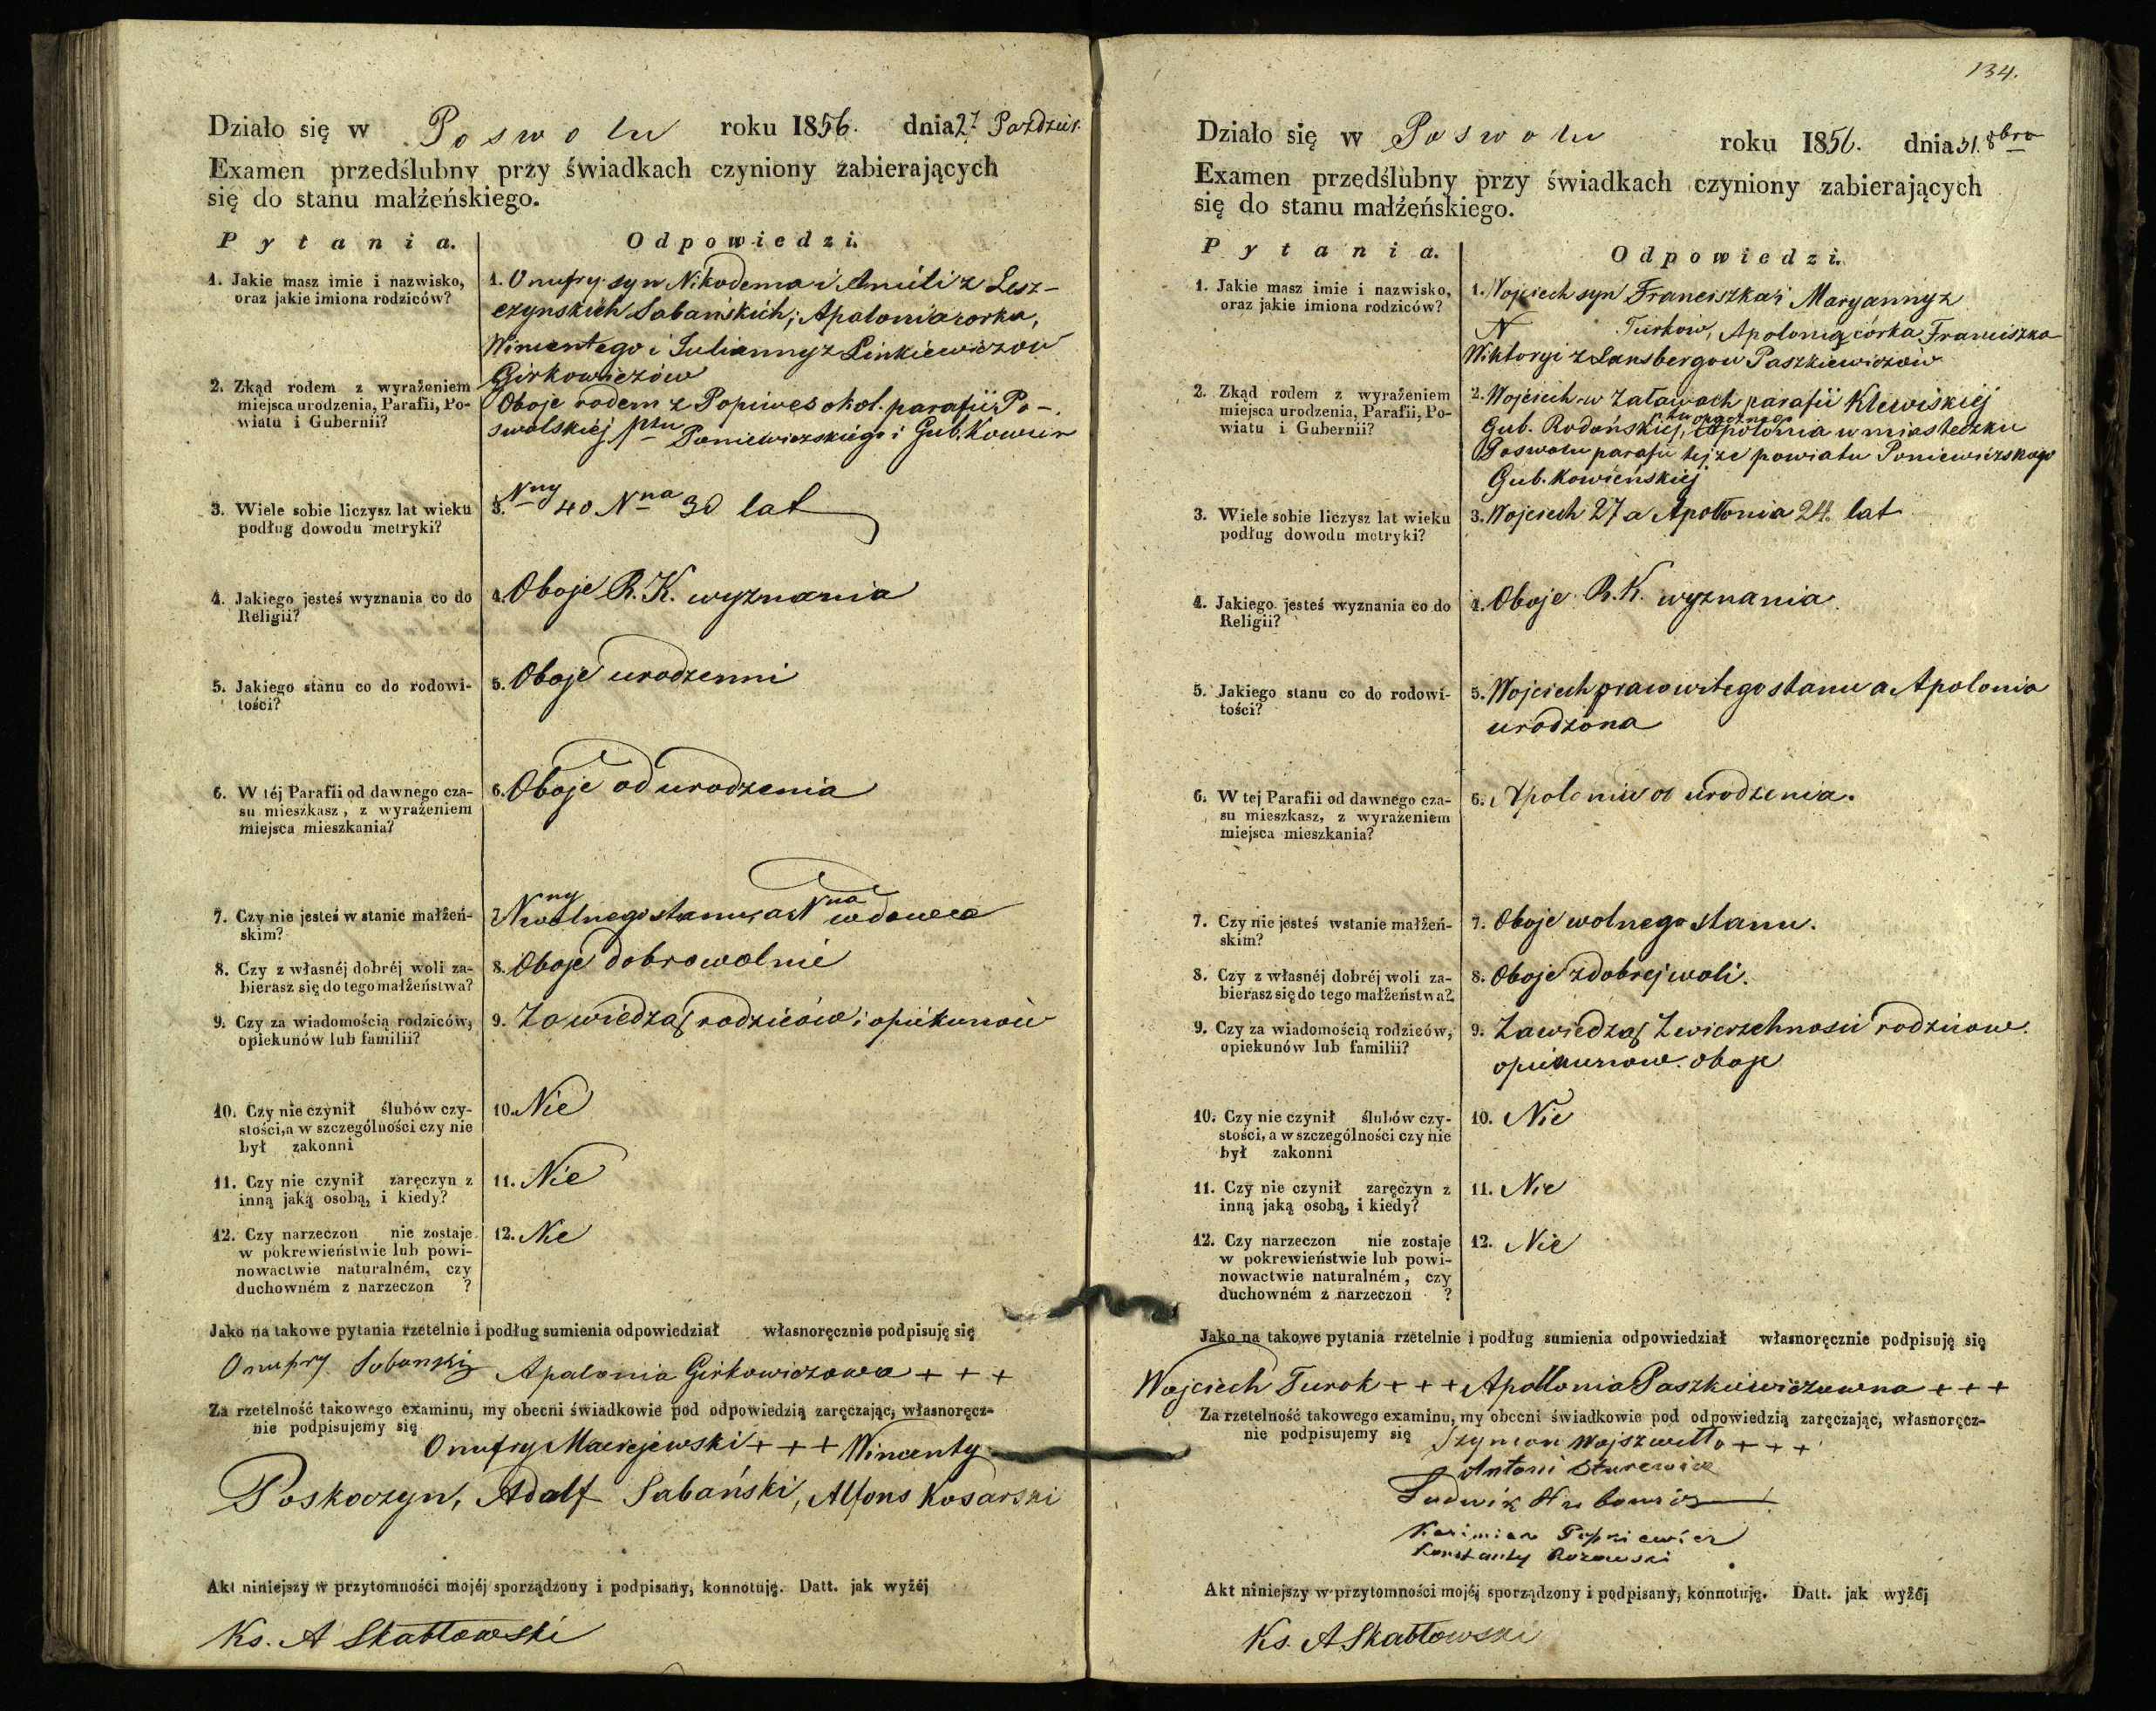 Działo się w Poswolu roku 1856. dnia 27 Paździer.
Examen przedślubny przy świadkach czyniony zabierających
się do stanu małżeńskiego.
Pytania. Odpowiedzi.
1. Jakie masz imie i nazwisko,
oraz jakie imiona rodziców?
1. Onufry syn Nikodema i Anieli z Lesz-
czynskich Sabańskich; Apalonia corka,
Wincentego i Julianny z Linkiewiczow
Girkowiczów
2. Zkąd rodem z wyrażeniem
miejsca urodzenia, Parafii, Po-
wiatu i Gubernii?
Oboje rodem z Popiwes okol. parafii Po-
swolskiej pttu Poniewiezskiego i Gub. Kowien
3. Wiele sobie liczysz lat wieku
podług dowodu metryki?
3. Nny 40 Nna 30 lat
4. Jakiego jesteś wyznania co do
Religii?
4. Oboje R. K. wyznania
5. Jakiego stanu co do rodowi-
tości?
5. Oboje urodzenni
6. W téj Parafii od dawnego cza-
su mieszkasz, z wyrażeniem
miejsca mieszkania?
6. Oboje od urodzenia
7. Czy nie jesteś w stanie małżeń-
skim?
7. Nny wolnego stanu, a Nna wdowa
8. Czy z własnéj dobréj woli za-
bierasz się do tego małżeństwa?
8. Oboje dobrowolnie
9. Czy za wiadomością rodziców,
opiekunów lub familii?
9. Za wiedzą rodziców i opiekunów
10. Czy nie czynił ślubów czy-
stości, a w szczególności czy nie
był zakonni
10. Nie
11. Czy nie czynił zaręczyn z
inną jaką osobą, i kiedy?
11. Nie
12. Czy narzeczon nie zostaje
w pokrewieństwie lub powi-
nowactwie naturalném, czy
duchowném z narzeczon ?
12. Nie
Jako na takowe pytania rzetelnie i podług sumienia odpowiedział własnoręcznie podpisuję się
Onufry Sobanski Apalonia Girkowiczowa + + +
Za rzetelność takowego examinu, my obecni świadkowie pod odpowiedzią zaręczając, własnoręcz-
nie podpisujemy się
Onufry Maciejewski + + + Wincenty
Poskoczyn, Adolf Sabański, Alfons Kosarski
Akt niniejszy w przytomności mojéj sporządzony i podpisany, konnotuję. Datt. jak wyżéj
Ks. A Skabłowski
134.
Działo się w Poswolu roku 1856. dnia 31. 8bra
Examen przedślubny przy świadkach czyniony zabierających
się do stanu małżeńskiego.
Pytania. Odpowiedzi.
1. Jakie masz imie i nazwisko,
oraz jakie imiona rodziców?
1. Wojciech syn Franciszka i Maryanny z
N Turkow, Apolonia córka Franciszka
Wiktoryi z Lansbergow Paszkiewiczów
2. Zkąd rodem z wyrażeniem
miejsca urodzenia, Parafii, Po-
wiatu i Gubernii?
2. Wojciech w Zatawach parafii Klewiskiej
Gub. Radońskiej, Apolonia w miasteczku
Poswolu parafii tejże powiatu Poniewiezskogo
Gub. Kowieńskiej
3. Wiele sobie liczysz lat wieku
podług dowodu metryki?
3. Wojciech 27 a Apolonia 24. lat
4. Jakiego jesteś wyznania co do
Religii?
4. Oboje R. K. wyznania.
5. Jakiego stanu co do rodowi-
tości?
5. Wojciech prawowitego stanu a Apolonia
urodzona
6. W tej Parafii od dawnego cza-
su mieszkasz, z wyrażeniem
miejsca mieszkania?
6. Apolonia od urodzenia.
7. Czy nie jesteś wstanie małżeń-
skim?
7. Oboje wolnego stanu.
8. Czy z własnéj dobréj woli za-
bierasz się do tego małżeństwa?
8. Oboje z dobrej woli.
9. Czy za wiadomością rodziców,
opiekunów lub familii?
9. Zawiedzą Zwierzchnosci rodzicow.
opiekunow. oboje
10. Czy nie czynił ślubów czy-
stości, a w szczególności czy nie
był zakonni
10. Nie
11. Czy nie czynił zaręczyn z
inną jaką osobą, i kiedy?
11. Nie
12. Czy narzeczon nie zostaje
w pokrewieństwie lub powi-
nowactwie naturalném, czy
duchowném z narzeczon ?
12. Nie
Jako na takowe pytania rzetelnie i podług sumienia odpowiedział własnoręcznie podpisuję się
Wojciech Turok + + + Apollonia Paszkiewiczowna + + +
Za rzetelność takowego examinu, my obecni świadkowie pod odpowiedzią zaręczając, własnoręcz-
nie podpisujemy się
Szymon Wojszwiłło + + +
Antoni
Ludwik
Kazimierz
Konstanty Rozowski
Akt niniejszy w przytomności mojéj sporządzony i podpisany, konnotuję. Datt. jak wyżéj
Ks. A Skabłowski